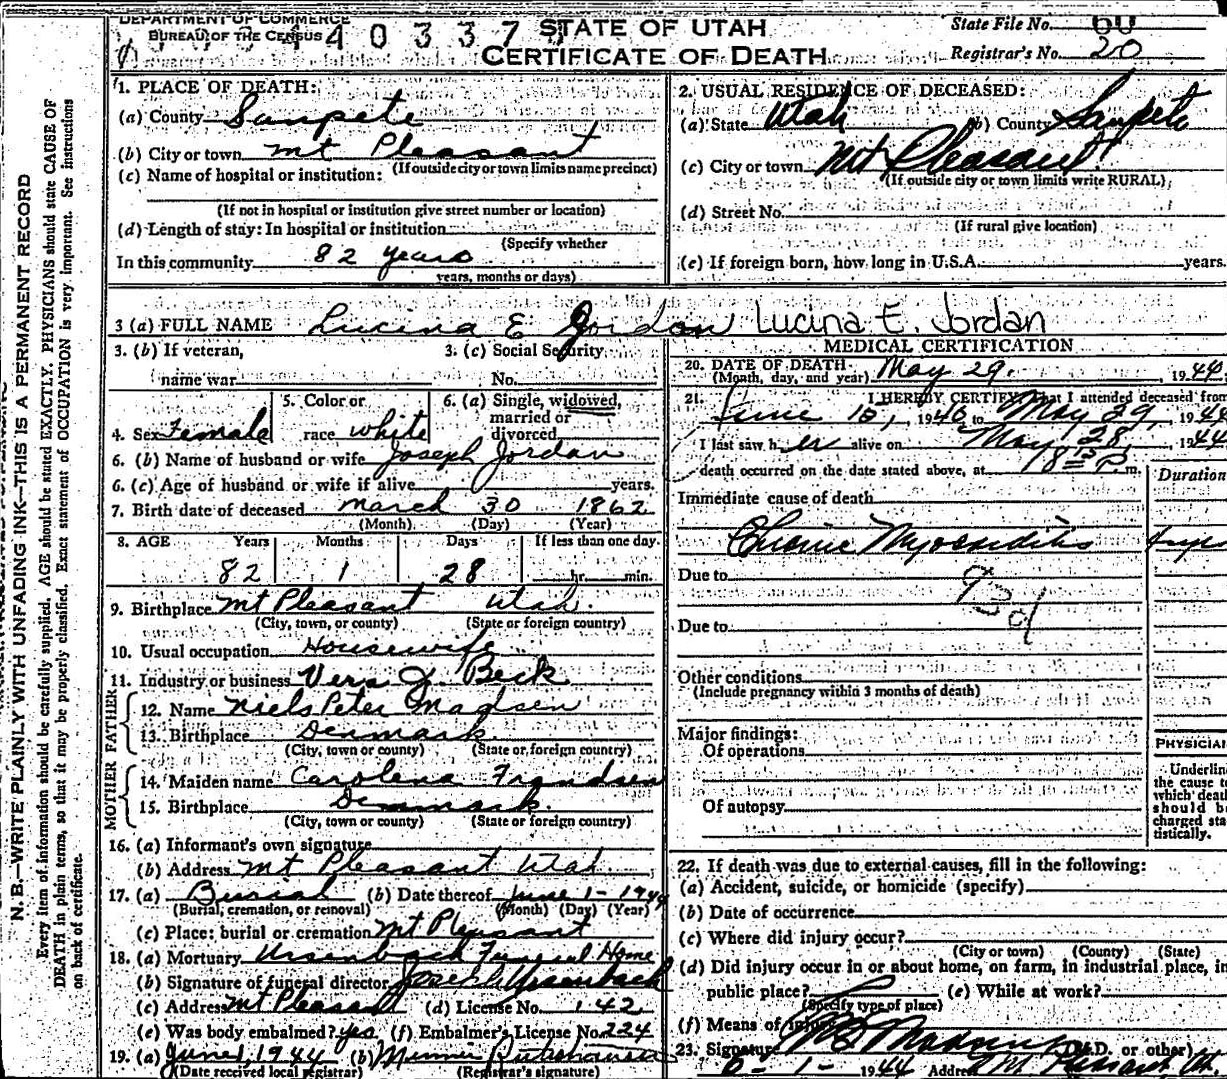 DEPARTMENT OF COMMERCE
BUREAU OF THE CENSUS
4 0 3 3 7
STATE OF UTAH
CERTIFICATE OF DEATH
State File No. 60
Registrar's No. 20
1. PLACE OF DEATH:
(a) County Sanpete
(b) City or town Mt Pleasant
(If outside city or town limits name precinct)
(c) Name of hospital or institution:
(If not in hospital or institution give street number or location)
(d) Length of stay: In hospital or institution
(Specify whether
In this community 82 years
years, months or days)
2. USUAL RESIDENCE OF DECEASED:
(a) State Utah (b) County Sanpete
(c) City or town Mt Pleasant
(If outside city or town limits write RURAL)
(d) Street No.
(If rural give location)
(e) If foreign born, how long in U.S.A. years.
3 (a) FULL NAME Lucina E Jordan Lucina E. Jordan
3. (b) If veteran,
name war
3. (c) Social Security
No.
4. Sex Female
5. Color or
race white
6. (a) Single, widowed,
married or
divorced
6. (b) Name of husband or wife Joseph Jordan
6. (c) Age of husband or wife if alive years.
7. Birth date of deceased March 30 1862
(Month) (Day) (Year)
8. AGE Years Months Days If less than one day
82 1 28 hr. min.
9. Birthplace Mt Pleasant Utah.
(City, town, or county) (State or foreign country)
10. Usual occupation Housewife
11. Industry or business Vera J. Beck
FATHER
12. Name Niels Peter Madsen
13. Birthplace Denmark
(City, town or county) (State or foreign country)
MOTHER
14. Maiden name Carolena Frandsen
15. Birthplace Denmark.
(City, town or county) (State or foreign country)
16. (a) Informant's own signature
(b) Address Mt Pleasant Utah
17. (a) Burial (b) Date thereof June 1-1944
(Burial, cremation, or removal) (Month) (Day) (Year)
(c) Place: burial or cremation Mt Pleasant
18. (a) Mortuary Ursenbach Funeral Home
(b) Signature of funeral director Joseph Ursenbach
(c) Address Mt Pleasant (d) License No. 142
(e) Was body embalmed? yes (f) Embalmer's License No. 224
19. (a) June 1, 1944 (b) Minnie
(Date received local registrar) (Registrar's signature)
MEDICAL CERTIFICATION
20. DATE OF DEATH
(Month, day, and year) May 29. , 1944
21. I HEREBY CERTIFY, That I attended deceased from
June 10, 1940, to May 29, 194
I last saw her alive on May 28, 1944
death occurred on the date stated above, at m.
Duration
Immediate cause of death
Chronic Myocarditis yrs
Due to 93d
Due to
Other conditions
(Include pregnancy within 3 months of death)
Major findings:
Of operations
Of autopsy
PHYSICIAN
Underline
the cause to
which death
should be
charged sta-
tistically.
22. If death was due to external causes, fill in the following:
(a) Accident, suicide, or homicide (specify)
(b) Date of occurrence
(c) Where did injury occur?
(City or town) (County) (State)
(d) Did injury occur in or about home, on farm, in industrial place, in
public place? (e) While at work?
(Specify type of place)
(f) Means of injury
23. Signature Madsen (M.D. or other)
6-1-1944 Address Mt Pleasant Ut.
N. B.—WRITE PLAINLY WITH UNFADING INK—THIS IS A PERMANENT RECORD
Every item of information should be carefully supplied. AGE should be stated EXACTLY. PHYSICIANS should state CAUSE OF
DEATH in plain terms, so that it may be properly classified. Exact statement of OCCUPATION is very important. See instructions
on back of certificate.